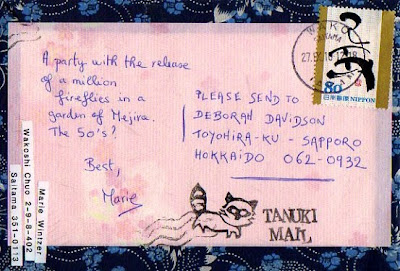 A party with the release
of a million
fireflies in a
garden of Mejiro.
The 50's?
Best,
Marie
PLEASE SEND TO
DEBORAH DAVIDSON
TOYOHIRA-KU - SAPPORO
HOKKAIDO 062-0932
WAKO
80
日本郵便 NIPPON
TANUKI
MAIL
Marie Wintzer
Wakoshi Chuo 2-9-8-402
Saitama 351-0113